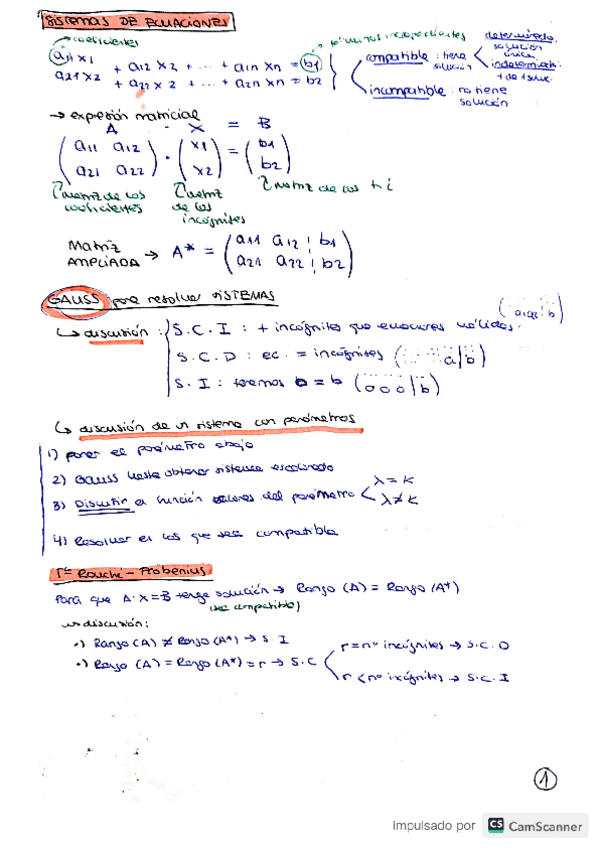 SISTEMAS DE ECUACIONES
coeficientes
términos independientes
a11 x1 + a12 x2 + ... + a1n xn = b1
a21 x2 + a22 x2 + ... + a2n xn = b2
compatible: tiene solución
determinado: solución única
indetermin: + de 1 soluc.
incompatible: no tiene solución
→ expresión matricial
A · X = B
(a11 a12) · (x1) = (b1)
(a21 a22) (x2) (b2)
matriz de los coeficientes
matriz de las incógnitas
matriz de los t i
MATRIZ AMPLIADA → A* = (a11 a12 ¦ b1)
(a21 a22 ¦ b2)
GAUSS para resolver SISTEMAS
↳ discusión: S.C.I: + incógnitas que ecuaciones válidas.
S.C.D: ec. = incógnitas (a|b)
S.I: tenemos 0 = b (0 0 0|b)
↳ discusión de un sistema con parámetros
1) poner el parámetro abajo
2) Gauss hasta obtener sistema escalonado
3) Discutir en función valores del parámetro
λ = k
λ ≠ k
4) Resolver en los que sea compatible
Tª Rouché - Fröbenius
Para que A·X=B tenga solución → Rango (A) = Rango (A*)
(sea compatible)
discusión:
·) Rango (A) ≠ Rango (A*) → S.I
·) Rango (A) = Rango (A*) = r → S.C
r = nº incógnitas → S.C.D
r < nº incógnitas → S.C.I
1
Impulsado por CS CamScanner